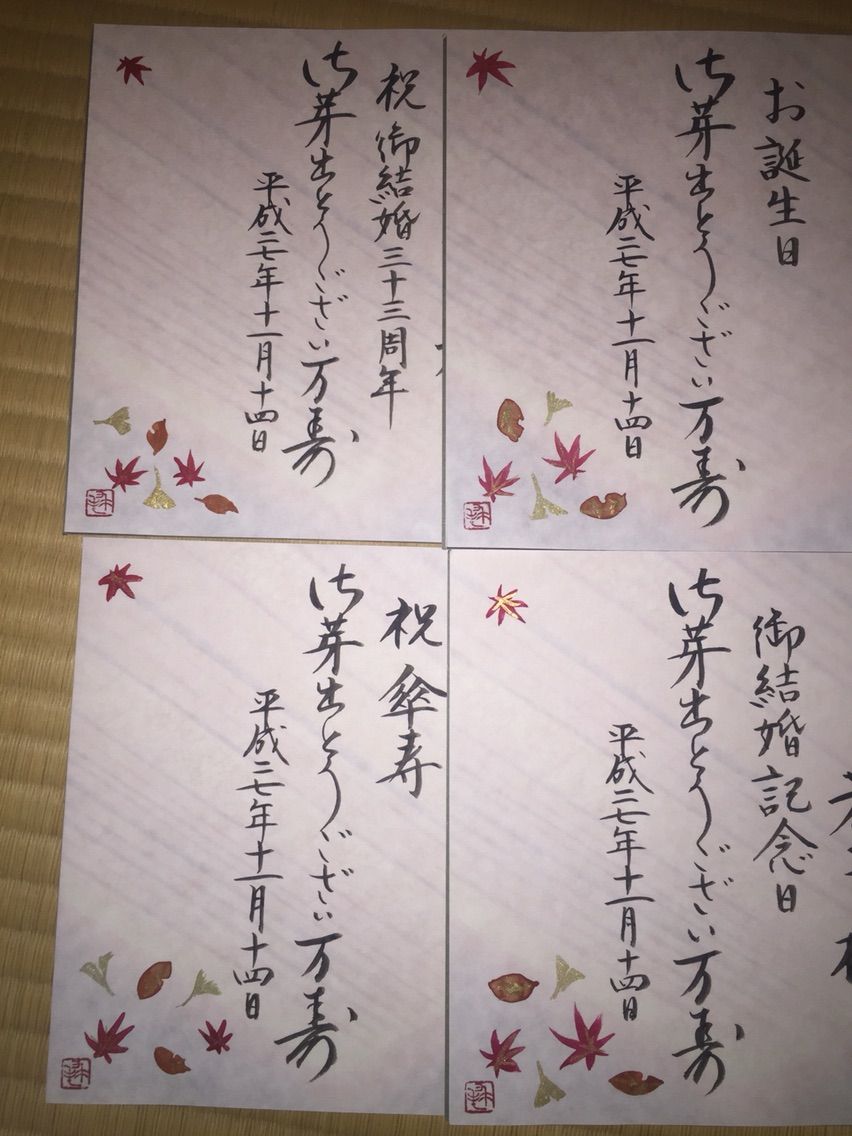 祝 御結婚三十三周年
御芽出とうござい万寿
平成二七年十一月十四日
お誕生日
御芽出とうござい万寿
平成二七年十一月十四日
祝 傘寿
御芽出とうござい万寿
平成二七年十一月十四日
御結婚記念日
御芽出とうござい万寿
平成二七年十一月十四日